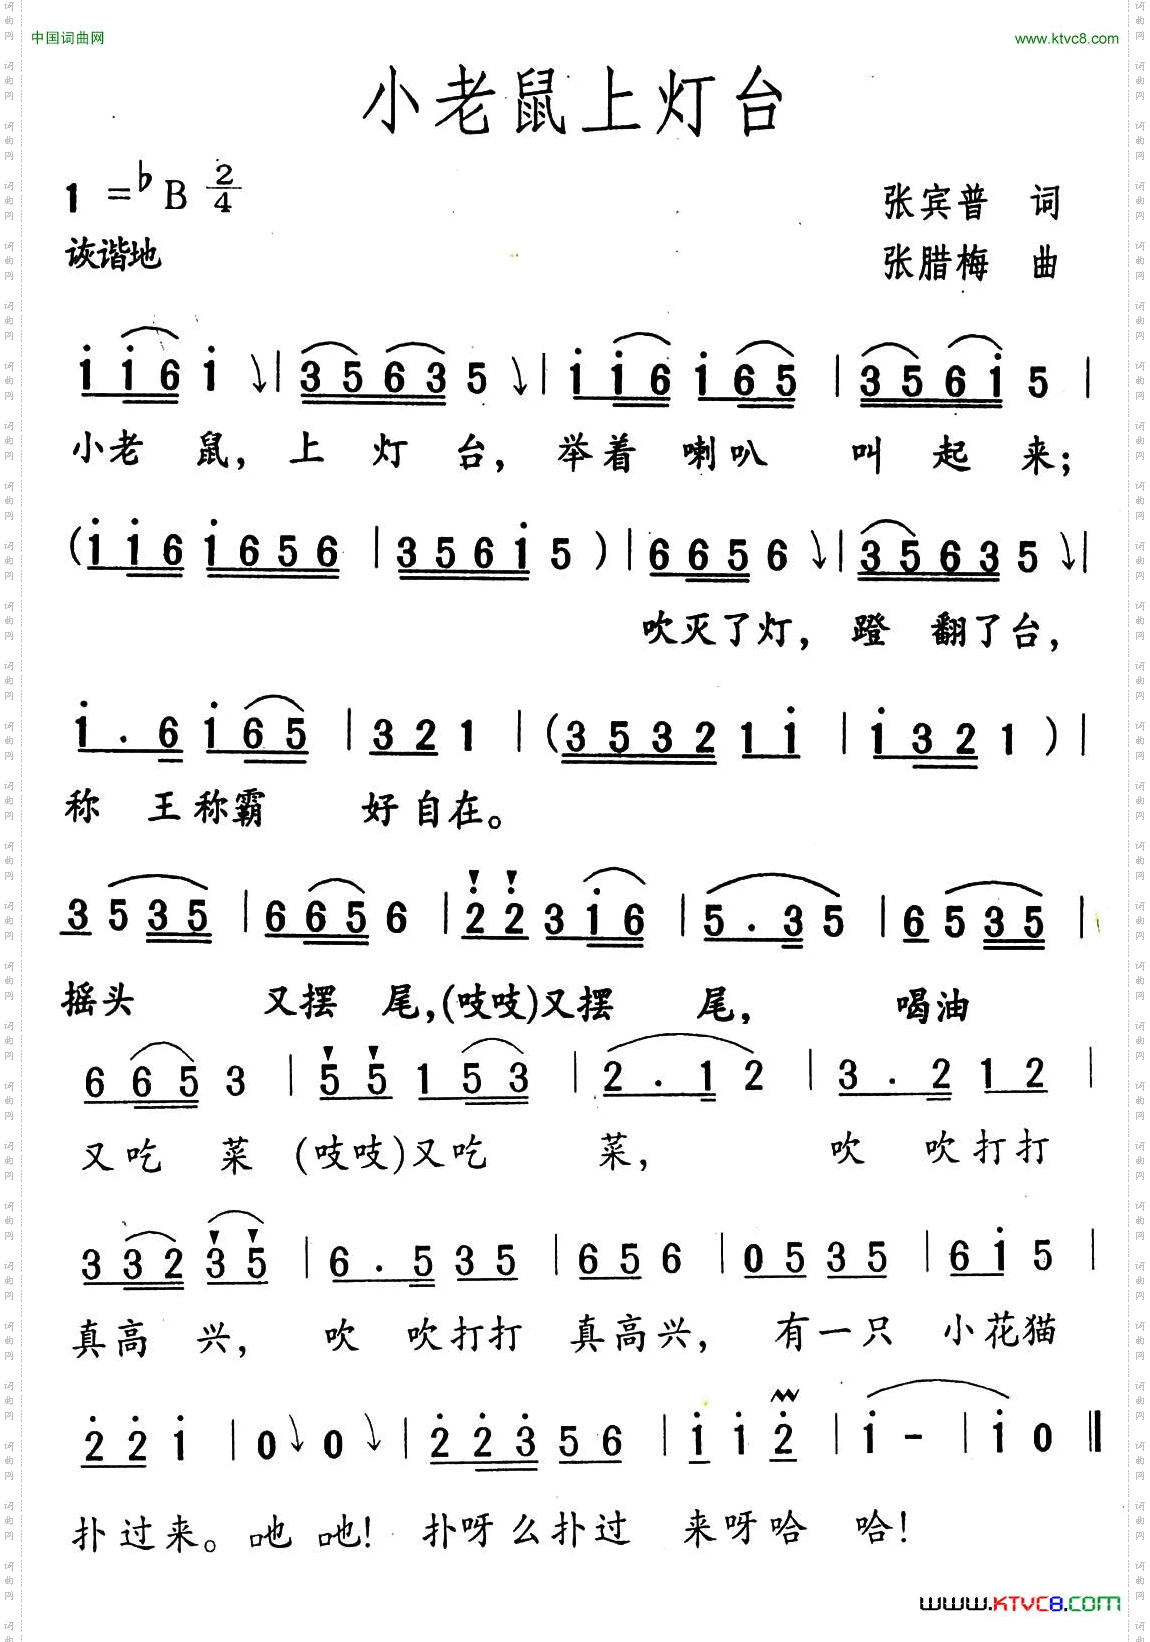 中国词曲网 www.ktvc8.com
小老鼠上灯台
1 =♭B 2/4
张宾普 词
诙谐地
张腊梅 曲
i i6 i ↘| 3563 5 ↘| i i6 i65 | 356i 5 |
小老 鼠, 上 灯 台, 举着 喇叭 叫 起 来;
(i i6 i656 | 356i 5 ) | 6 65 6 ↘| 3563 5 ↘|
吹灭了灯, 蹬 翻了台,
i . 6 i 65 | 32 1 | (3532 1i | i 32 1 ) |
称 王称霸 好自在。
3 5 35 | 6 65 6 | 22 3 i6 | 5 . 35 | 6 5 35 |
摇头 又摆 尾,(吱吱)又摆 尾, 喝油
6 65 3 | 55 1 53 | 2 . 1 2 | 3 . 2 12 |
又吃 菜 (吱吱)又吃 菜, 吹 吹打打
3 32 35 | 6 . 5 35 | 65 6 | 05 35 | 6i 5 |
真高 兴, 吹 吹打打 真高兴, 有一只 小花猫
22 i | 0↘ 0 ↘| 2 23 56 | i i 2 | i - | i 0 ‖
扑过来。吔 吔! 扑呀么扑过 来呀哈 哈!
www.KTVC8.COM